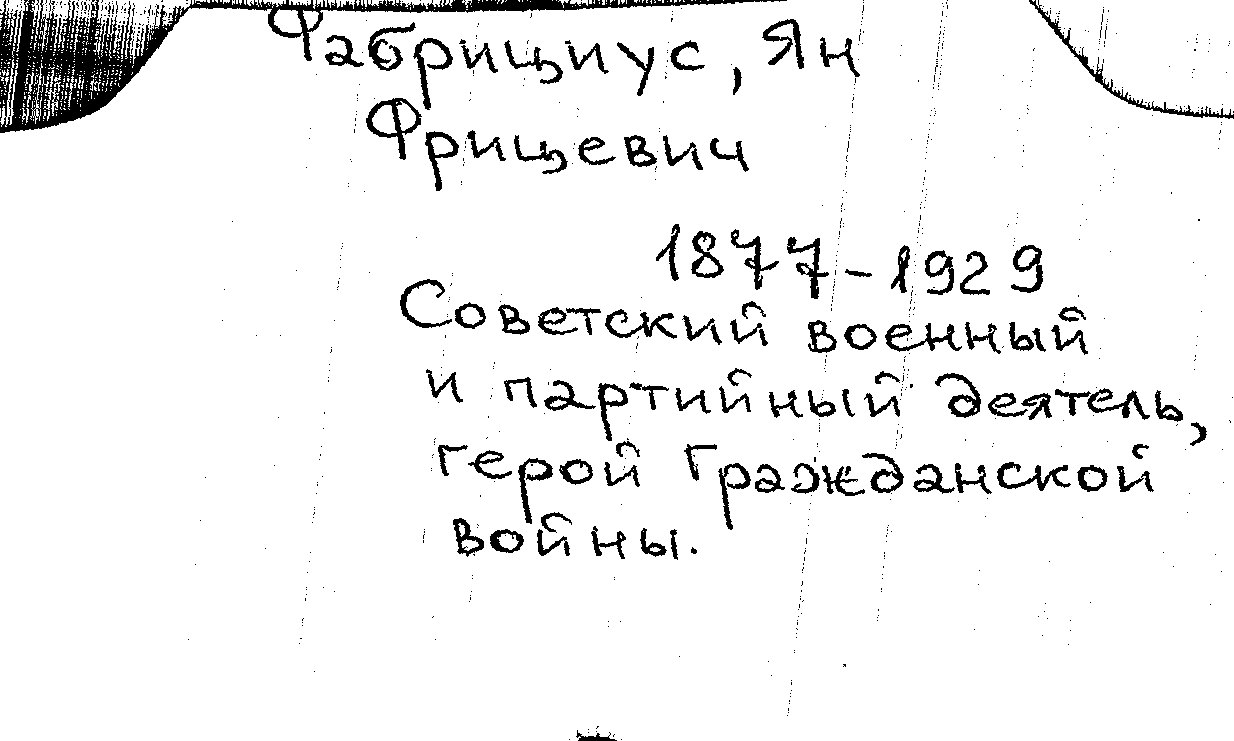 Фабрициус, Ян
Фрицевич
1877-1929
Советский военный
и партийный деятель,
герой Гражданской
войны.